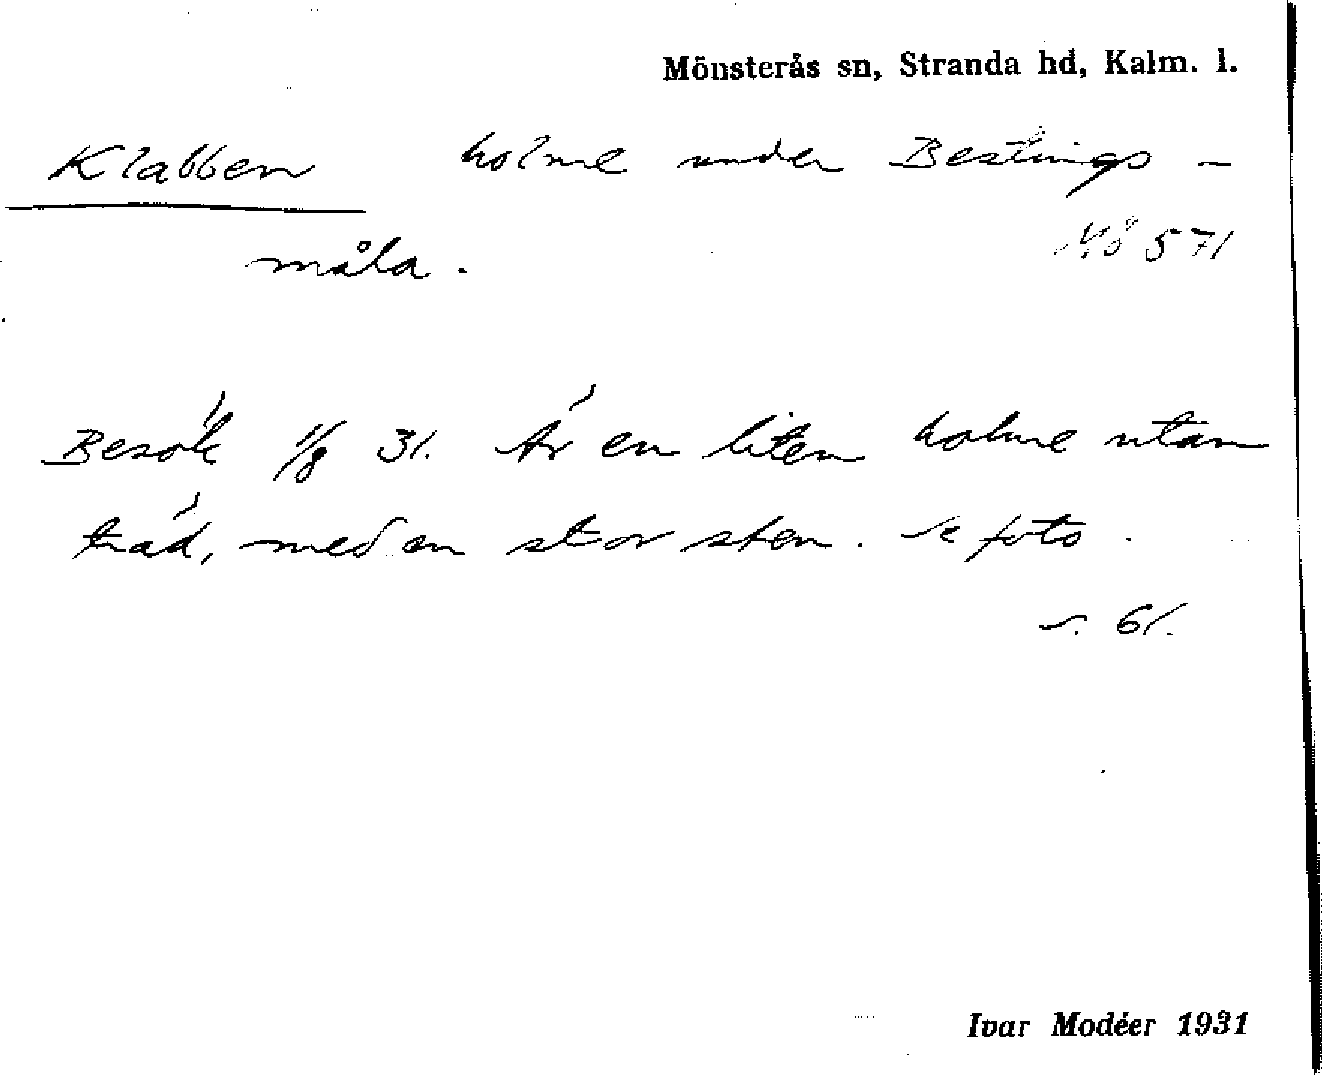 Mönsterås sn, Stranda hd, Kalm. l.
Klabben holme under Bestings-
måla. Mö 571
Besök 1/8 31. Är en liten holme utan
träd, med en stor sten. Se foto.
s. 61.
Ivar Modéer 1931